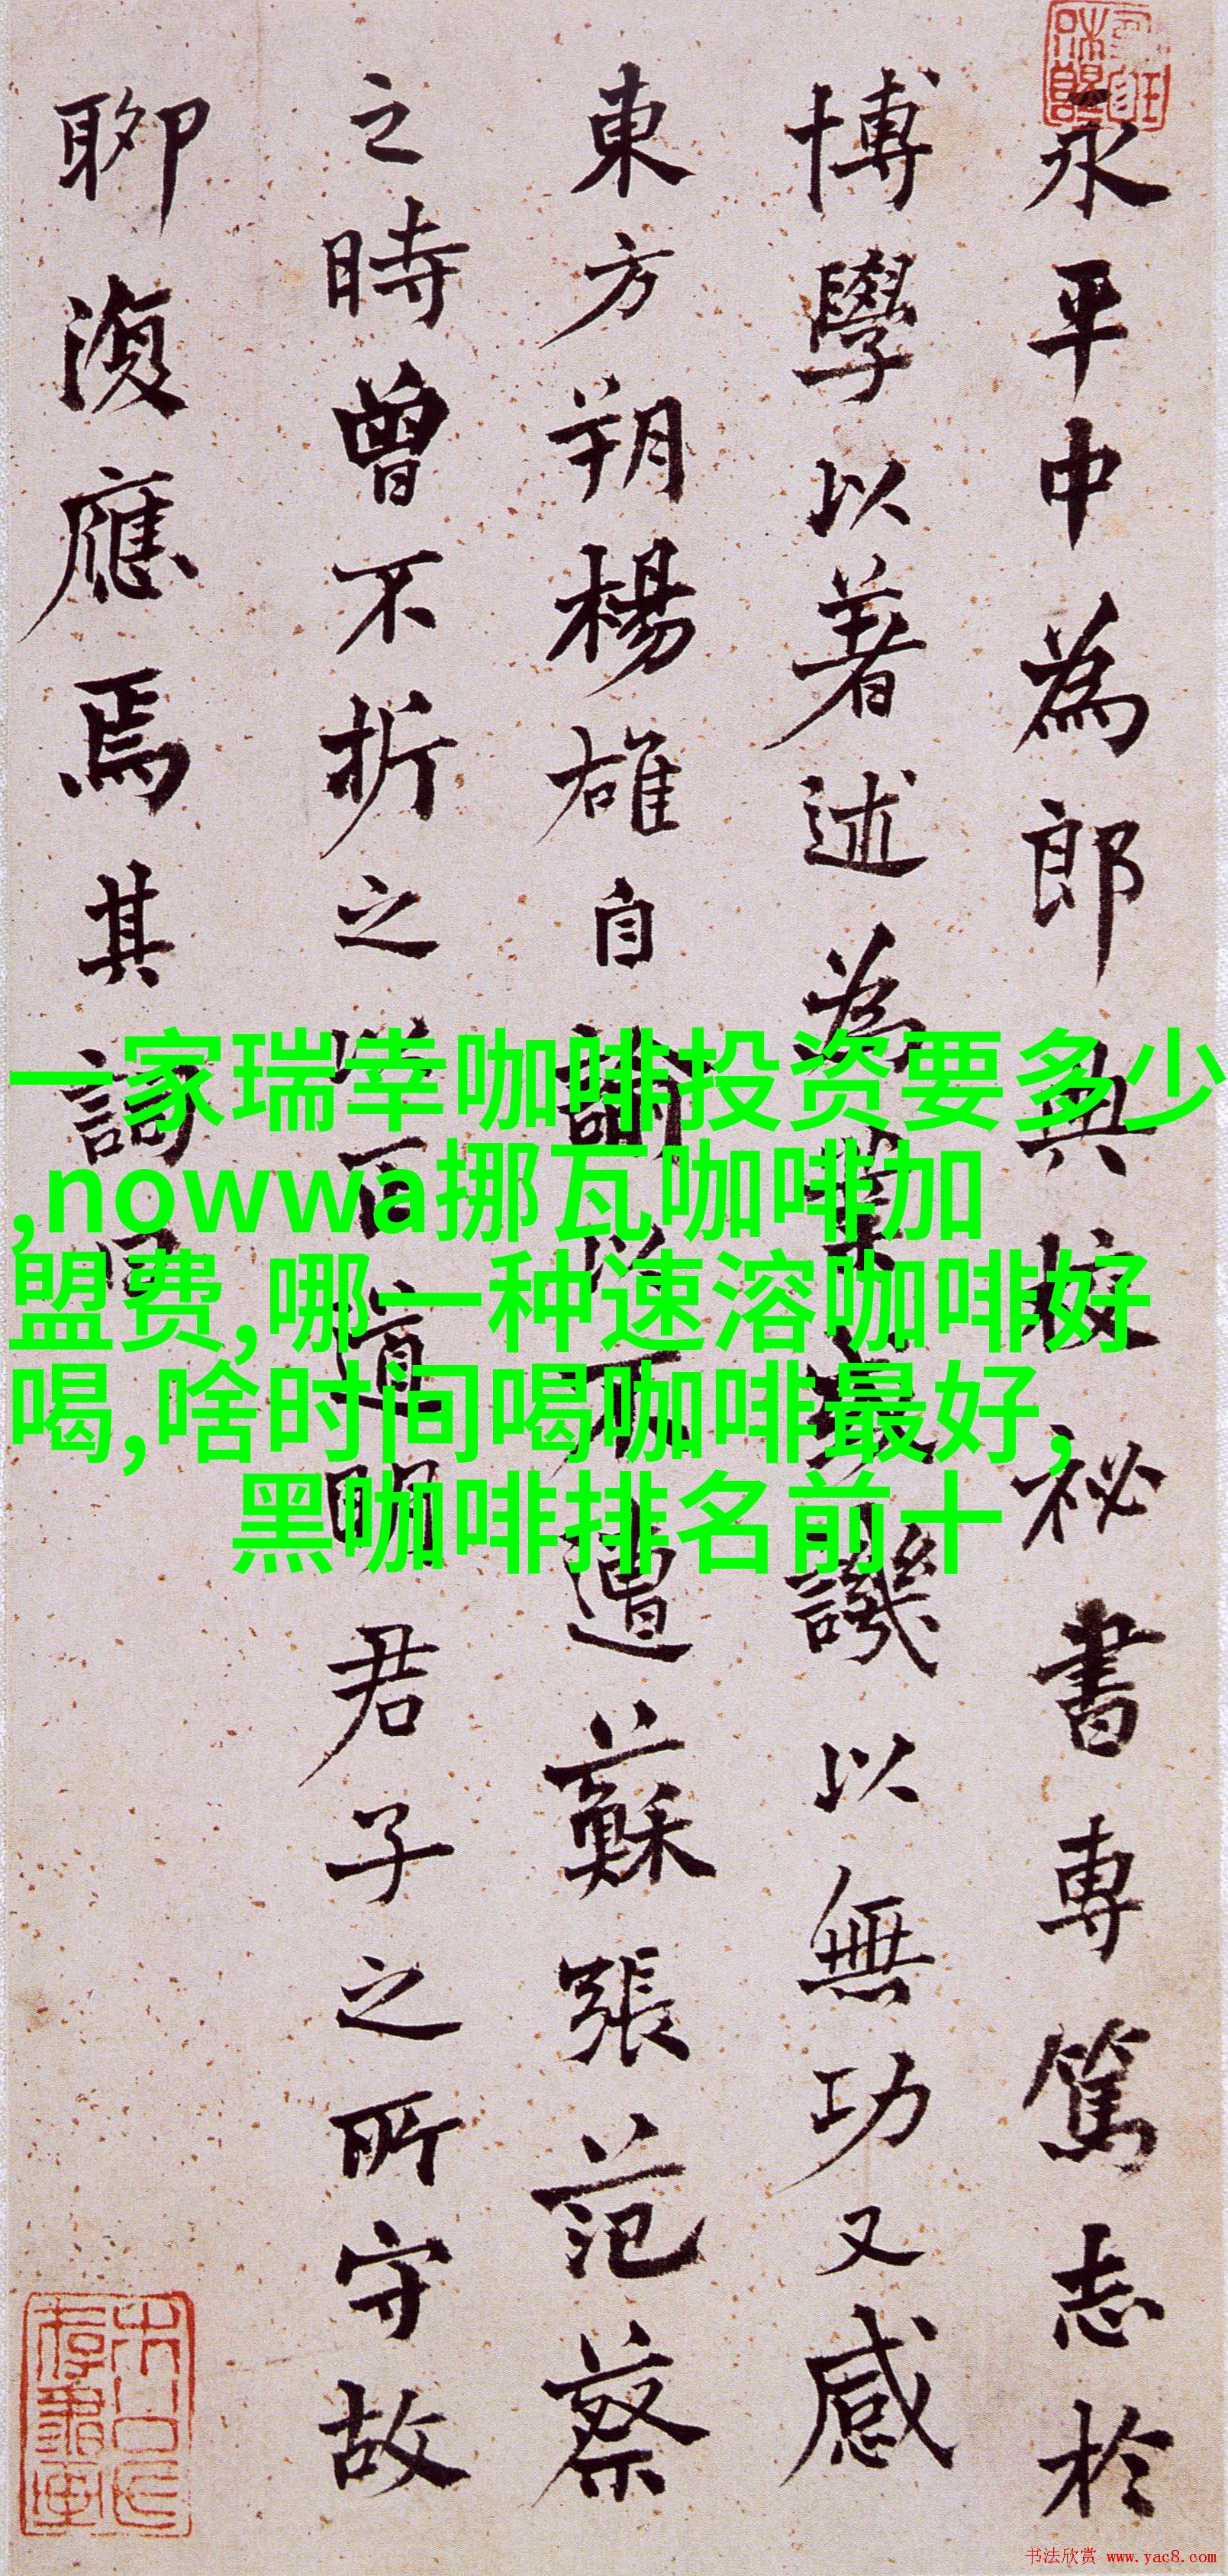 永平中為郎典校祕書專篤志於
博學以著述為業或譏以無功又感
東方朔楊雄自論以不遭蘇張范蔡
之時曾不折之以正道明君子之所守故
聊復應焉其詞曰
一家瑞幸咖啡投资要多少
,nowwa挪瓦咖啡加
盟费,哪一种速溶咖啡好
喝,啥时间喝咖啡最好,
黑咖啡排名前十
书法欣赏 www.yac8.com